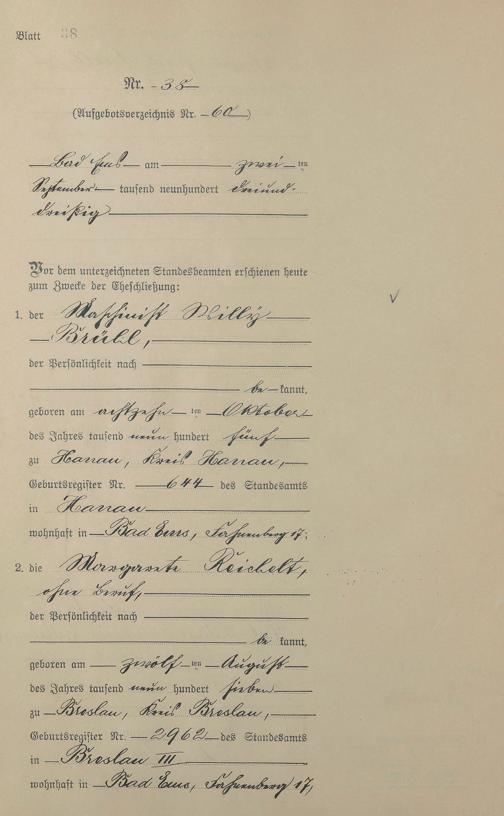 Blatt 38
Nr. 38
(Aufgebotsverzeichnis Nr. 60)
Bad Ems am zwei ten
September tausend neunhundert dreiund-
dreißig
Vor dem unterzeichneten Standesbeamten erschienen heute
zum Zwecke der Eheschließung:
1. der Maschinist Willy
Brühl,
der Persönlichkeit nach
be kannt,
geboren am achtzehn ten Oktober
des Jahres tausend neun hundert fünf
zu Hanau, Kreis Hanau,
Geburtsregister Nr. 644 des Standesamts
in Hanau
wohnhaft in Bad Ems, Fahnenberg 17.
2. die Margarete Reichelt,
ohne Beruf,
der Persönlichkeit nach
be kannt,
geboren am zwölf ten August
des Jahres tausend neun hundert sieben
zu Breslau, Kreis Breslau,
Geburtsregister Nr. 2962 des Standesamts
in Breslau III
wohnhaft in Bad Ems, Fahnenberg 17,